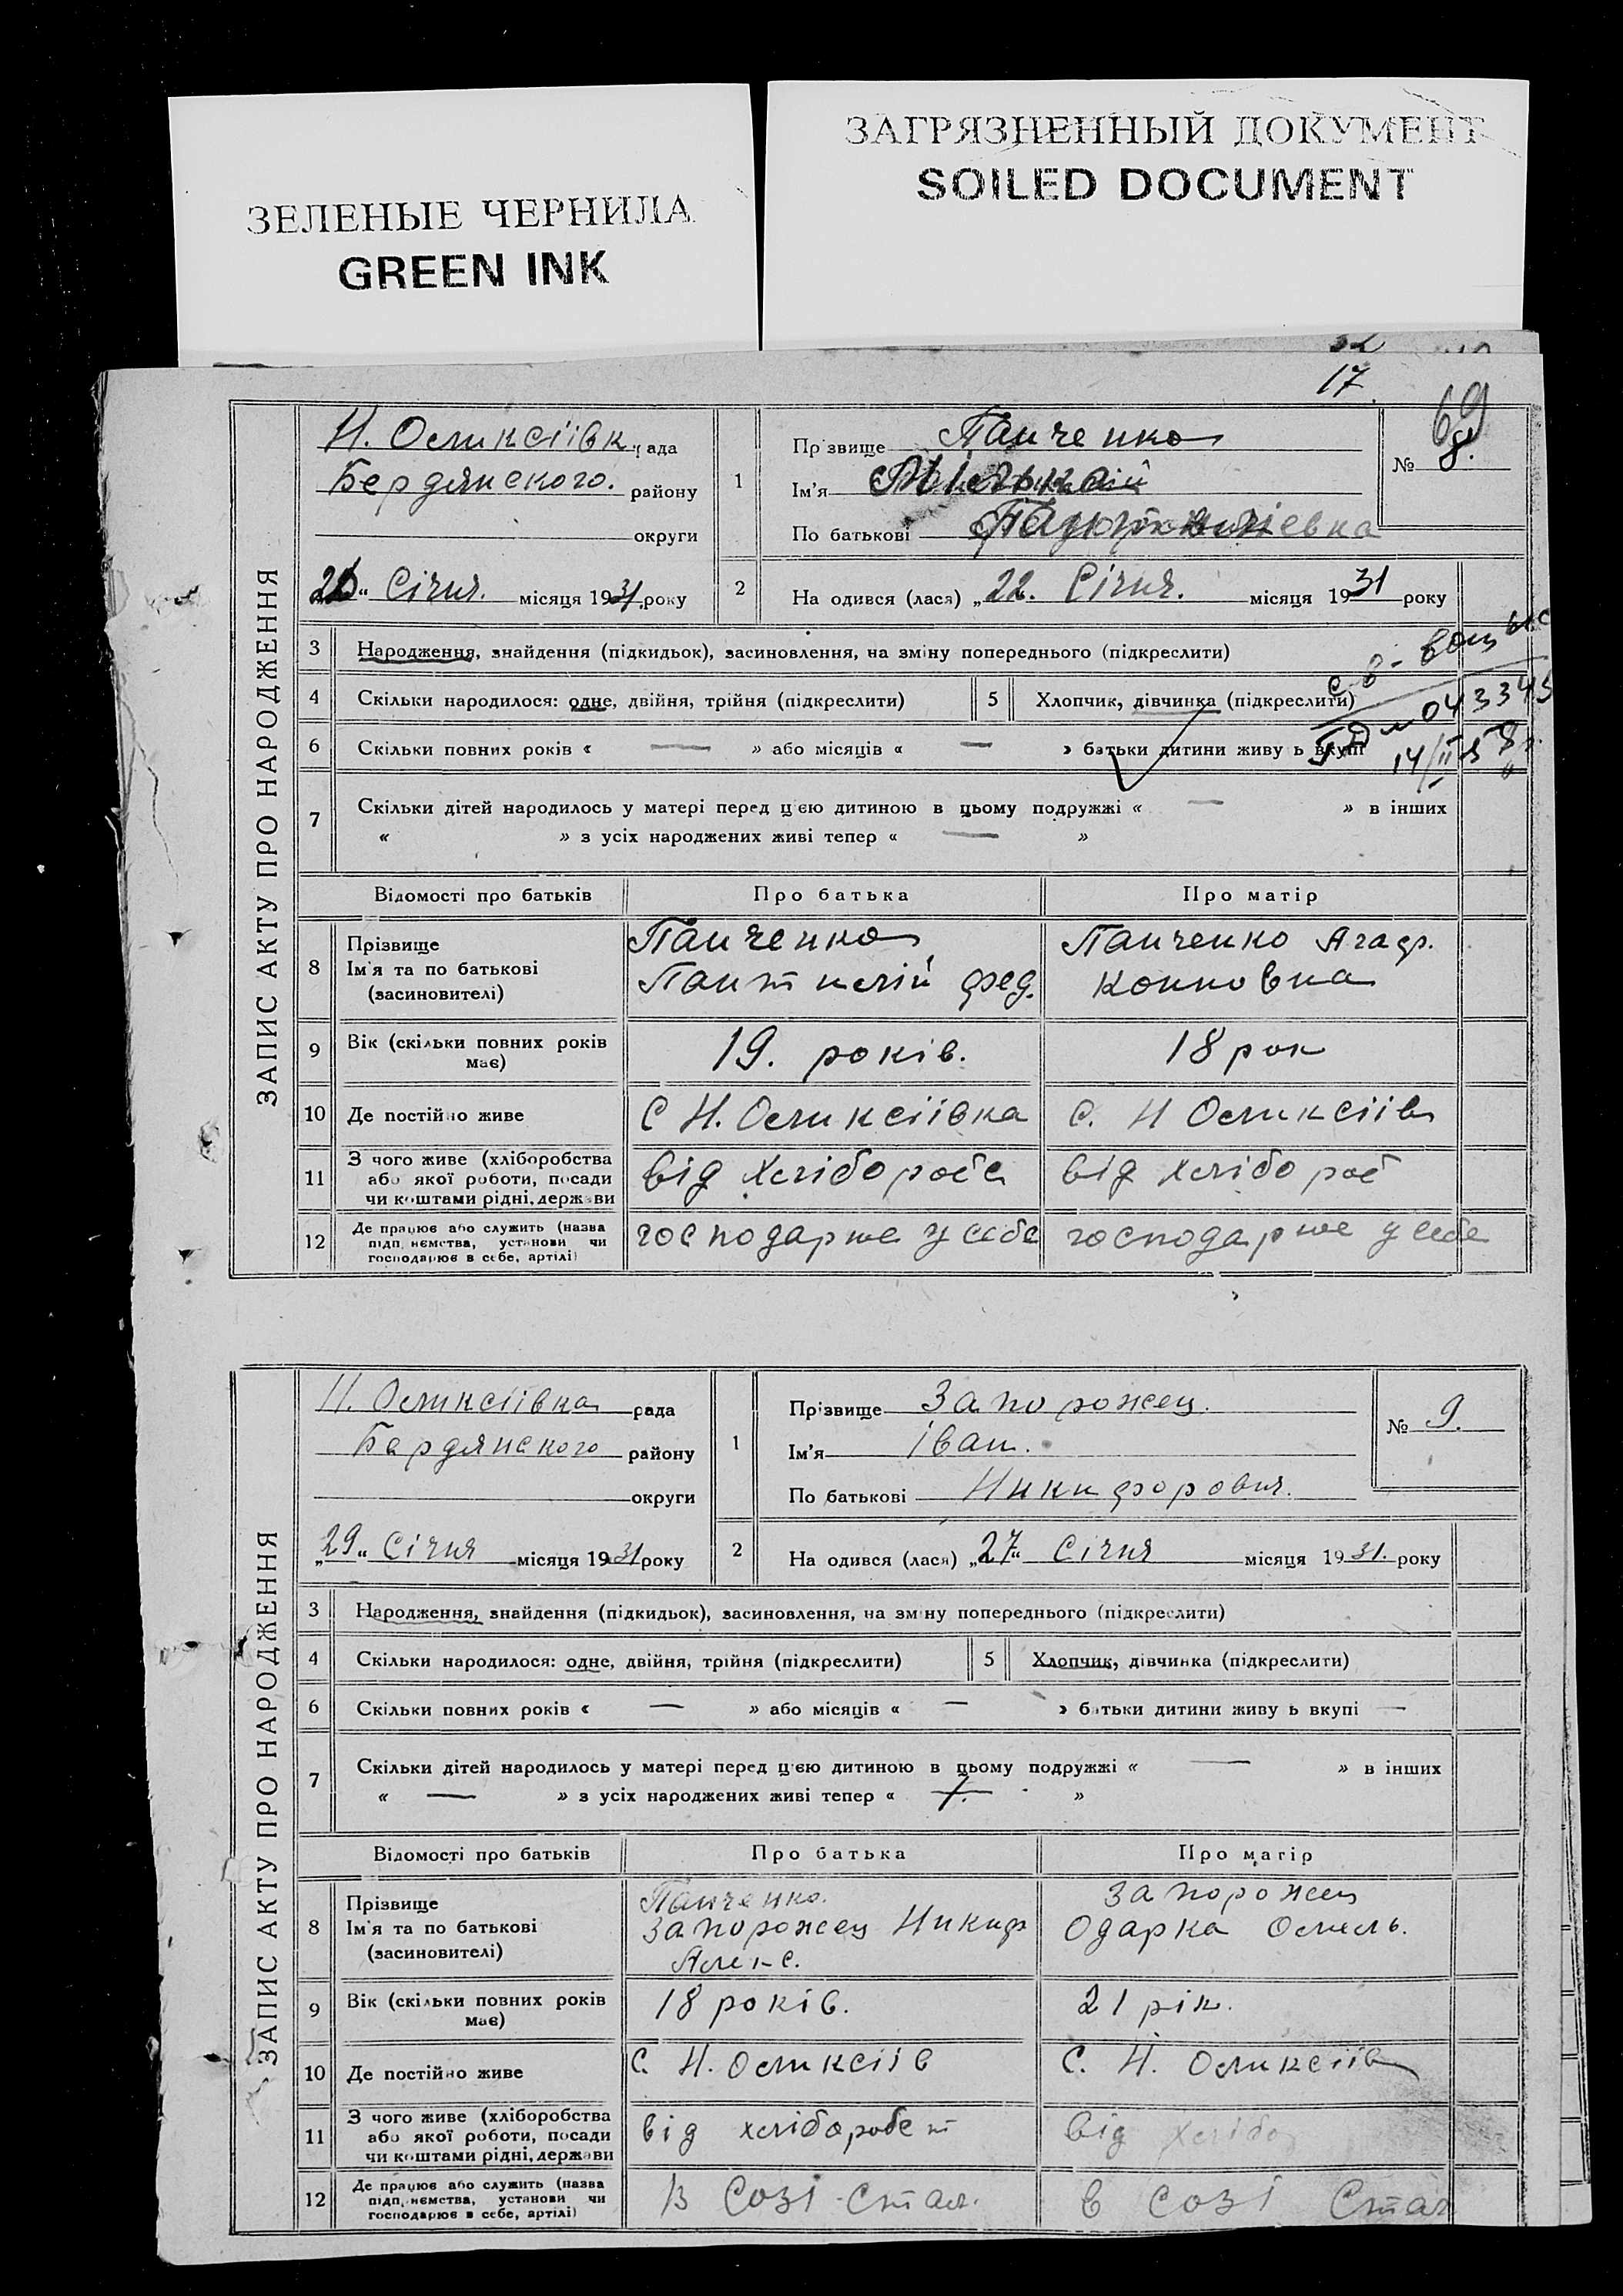 ЗЕЛЕНЫЕ ЧЕРНИЛА
GREEN INK
ЗАГРЯЗНЕННЫЙ ДОКУМЕНТ
SOILED DOCUMENT
17
69
ЗАПИС АКТУ ПРО НАРОДЖЕННЯ
Н. Оликсіівк рада
Бердянского. району
округи
місяця 1931 року
Січня.
1
Прізвище Панченко
Ім'я
По батькові
№ 8.
2
На одився (лася) „22. Січня. місяця 1931 року
3 Народження, знайдення (підкидьок), засиновлення, на зміну попереднього (підкреслити)
4 Скільки народилося: одне, двійня, трійня (підкреслити)
5 Хлопчик, дівчинка (підкреслити)
043345
6 Скільки повних років « — » або місяців « — » батьки дитини живу ь вкупі
7 Скільки дітей народилось у матері перед цією дитиною в цьому подружжі « — » в інших
« » з усіх народжених живі тепер « — »
Відомості про батьків Про батька Про матір
8 Прізвище Ім'я та по батькові (засиновителі)
Панченко
Пантилій фед.
Панченко Агаф.
Кононовна
9 Вік (скільки повних років має) 19. років. 18 рок
10 Де постійно живе С Н. Оликсіівка С. Н Оликсіів
11 З чого живе (хліборобства або якої роботи, посади чи коштами рідні, держави від хлібороб від хлібороб
12 Де працює або служить (назва підприємства, установи чи господарює в себе, артілі) господарює у себе господарює у себе
ЗАПИС АКТУ ПРО НАРОДЖЕННЯ
Н. Оликсіівка рада
Бердянского району
округи
„29“ Січня місяця 1931 року
1
Прізвище Запорожец.
Ім'я Іван.
По батькові Никифорович.
№ 9.
2
На одився (лася) „27“ Січня місяця 1931. року
3 Народження, знайдення (підкидьок), засиновлення, на зміну попереднього (підкреслити)
4 Скільки народилося: одне, двійня, трійня (підкреслити)
5 Хлопчик, дівчинка (підкреслити)
6 Скільки повних років « — » або місяців « — » батьки дитини живу ь вкупі —
7 Скільки дітей народилось у матері перед цією дитиною в цьому подружжі « — » в інших
« — » з усіх народжених живі тепер « »
Відомості про батьків Про батька Про матір
8 Прізвище Ім'я та по батькові (засиновителі)
Панченко.
Запорожец Никиф
Алекс.
Запорожец
Одарка Омель.
9 Вік (скільки повних років має) 18 років. 21 рік.
10 Де постійно живе С. Н. Оликсіів С. Н. Оликсіів
11 З чого живе (хліборобства або якої роботи, посади чи коштами рідні, держави від хлібороб від хлібо
12 Де працює або служить (назва підприємства, установи чи господарює в себе, артілі) В Созі Стал. в Созі Стал